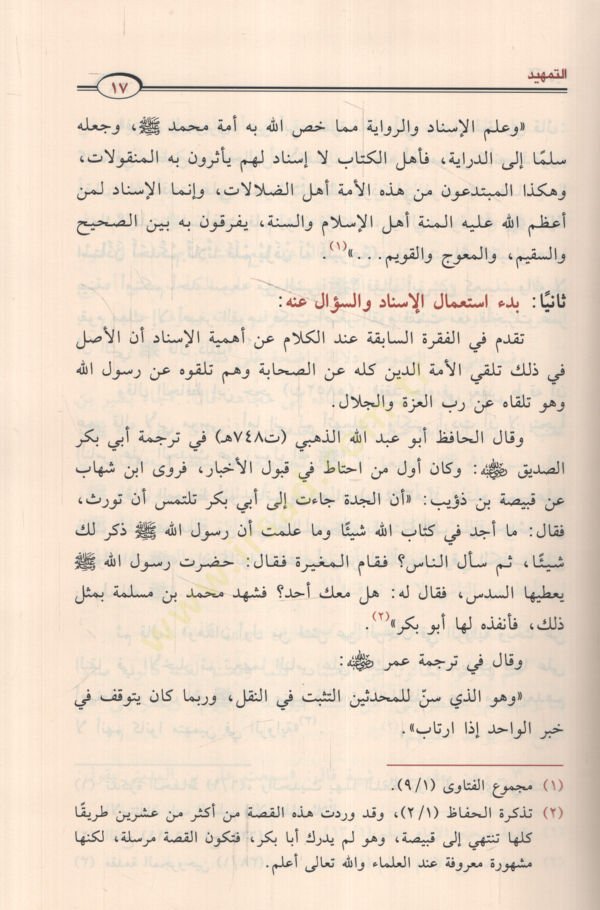 التمهيد
١٧
«وعلم الإسناد والرواية مما خص الله به أمة محمد ﷺ، وجعله
سلمًا إلى الدراية، فأهل الكتاب لا إسناد لهم يأثرون به المنقولات،
وهكذا المبتدعون من هذه الأمة أهل الضلالات، وإنما الإسناد لمن
أعظم الله عليه المنة أهل الإسلام والسنة، يفرقون به بين الصحيح
والسقيم، والمعوج والقويم...»(١).
ثانيًا: بدء استعمال الإسناد والسؤال عنه:
تقدم في الفقرة السابقة عند الكلام عن أهمية الإسناد أن الأصل
في ذلك تلقي الأمة الدين كله عن الصحابة وهم تلقوه عن رسول الله ﷺ
وهو تلقاه عن رب العزة والجلال.
وقال الحافظ أبو عبد الله الذهبي (ت٧٤٨هـ) في ترجمة أبي بكر
الصديق رضي الله عنه: وكان أول من احتاط في قبول الأخبار، فروى ابن شهاب
عن قبيصة بن ذؤيب: «أن الجدة جاءت إلى أبي بكر تلتمس أن تورث،
فقال: ما أجد في كتاب الله شيئًا وما علمت أن رسول الله ﷺ ذكر لك
شيئًا، ثم سأل الناس؟ فقام المغيرة فقال: حضرت رسول الله ﷺ
يعطيها السدس، فقال له: هل معك أحد؟ فشهد محمد بن مسلمة بمثل
ذلك، فأنفذه لها أبو بكر»(٢).
وقال في ترجمة عمر رضي الله عنه:
«وهو الذي سنّ للمحدثين التثبت في النقل، وربما كان يتوقف في
خبر الواحد إذا ارتاب».
(١) مجموع الفتاوى (٩/١).
(٢) تذكرة الحفاظ (٢/١)، وقد وردت هذه القصة من أكثر من عشرين طريقًا
كلها تنتهي إلى قبيصة، وهو لم يدرك أبا بكر، فتكون القصة مرسلة، لكنها
مشهورة معروفة عند العلماء والله تعالى أعلم.